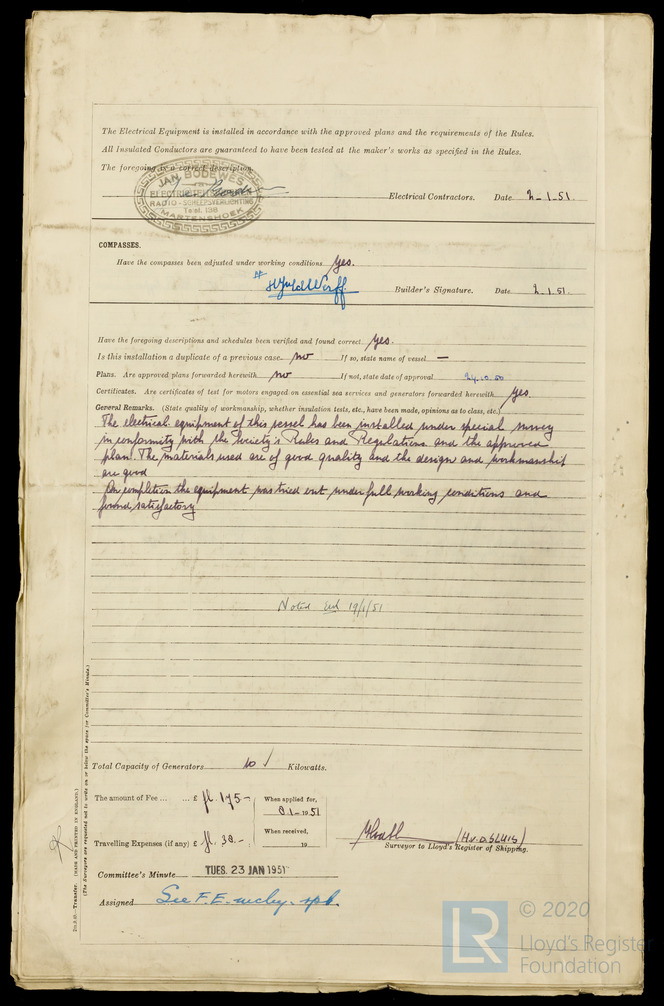 The Electrical Equipment is installed in accordance with the approved plans and the requirements of the Rules.
All Insulated Conductors are guaranteed to have been tested at the maker's works as specified in the Rules.
The foregoing is a correct description,
JAN BODEWES
RADIO - SCHEEPSVERLICHTING
Telef. 138
MARTENSHOEK
Electrical Contractors. Date 2-1-51.
COMPASSES.
Have the compasses been adjusted under working conditions yes.
Builder's Signature. Date 2.1.51.
Have the foregoing descriptions and schedules been verified and found correct yes.
Is this installation a duplicate of a previous case no If so, state name of vessel —
Plans. Are approved plans forwarded herewith no If not, state date of approval 24.10.50
Certificates. Are certificates of test for motors engaged on essential sea services and generators forwarded herewith yes
General Remarks. (State quality of workmanship, whether insulation tests, etc., have been made, opinions as to class, etc.)
The electrical equipment of this vessel has been installed under special survey
in conformity with the Society's Rules and Regulations and the approved
plan. The materials used are of good quality and the design and workmanship
are good
On completion the equipment was tried out under full working conditions and
found satisfactory
Noted 19/1/51
Total Capacity of Generators 10 Kilowatts.
The amount of Fee ... ... £ fl. 175- When applied for,
8.1-1951
Travelling Expenses (if any) £ fl. 30.- When received,
19
(H.v.d.SLUIS)
Surveyor to Lloyd's Register of Shipping.
Committee's Minute TUES. 23 JAN 1951
Assigned See F.E. mchy. rpt.
Transfer. (MADE AND PRINTED IN ENGLAND.)
(The Surveyors are requested not to write on or below the space for Committee's Minute.)
LR
© 2020
Lloyd's Register
Foundation